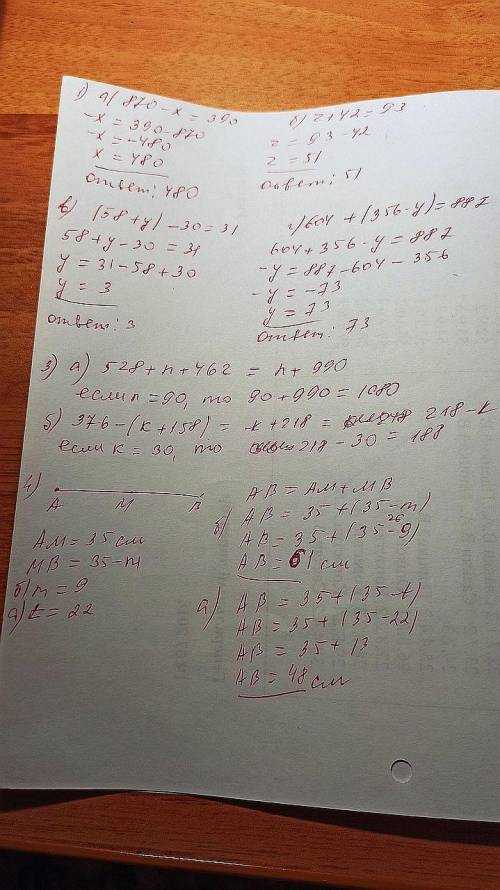 1) а) 870 - x = 390
-x = 390 - 870
-x = -480
x = 480
ответ: 480
б) z + 42 = 93
z = 93 - 42
z = 51
ответ: 51
в) (58+y) - 30 = 31
58 + y - 30 = 31
y = 31 - 58 + 30
y = 3
ответ: 3
г) 604 + (356 - y) = 887
604 + 356 - y = 887
-y = 887 - 604 - 356
-y = -73
y = 73
ответ: 73
3) а) 528 + n + 462 = n + 990
если n = 90, то 90 + 990 = 1080
б) 376 - (k + 158) = -k + 218 = 218 - k
если k = 30, то 218 - 30 = 188
4)
A M B
AM = 35 см
MB = 35 - m
б) m = 9
а) t = 22
AB = AM + MB
б) AB = 35 + (35 - m)
26
AB = 35 + (35 - 9)
AB = 61 см
а) AB = 35 + (35 - t)
AB = 35 + (35 - 22)
AB = 35 + 13
AB = 48 см